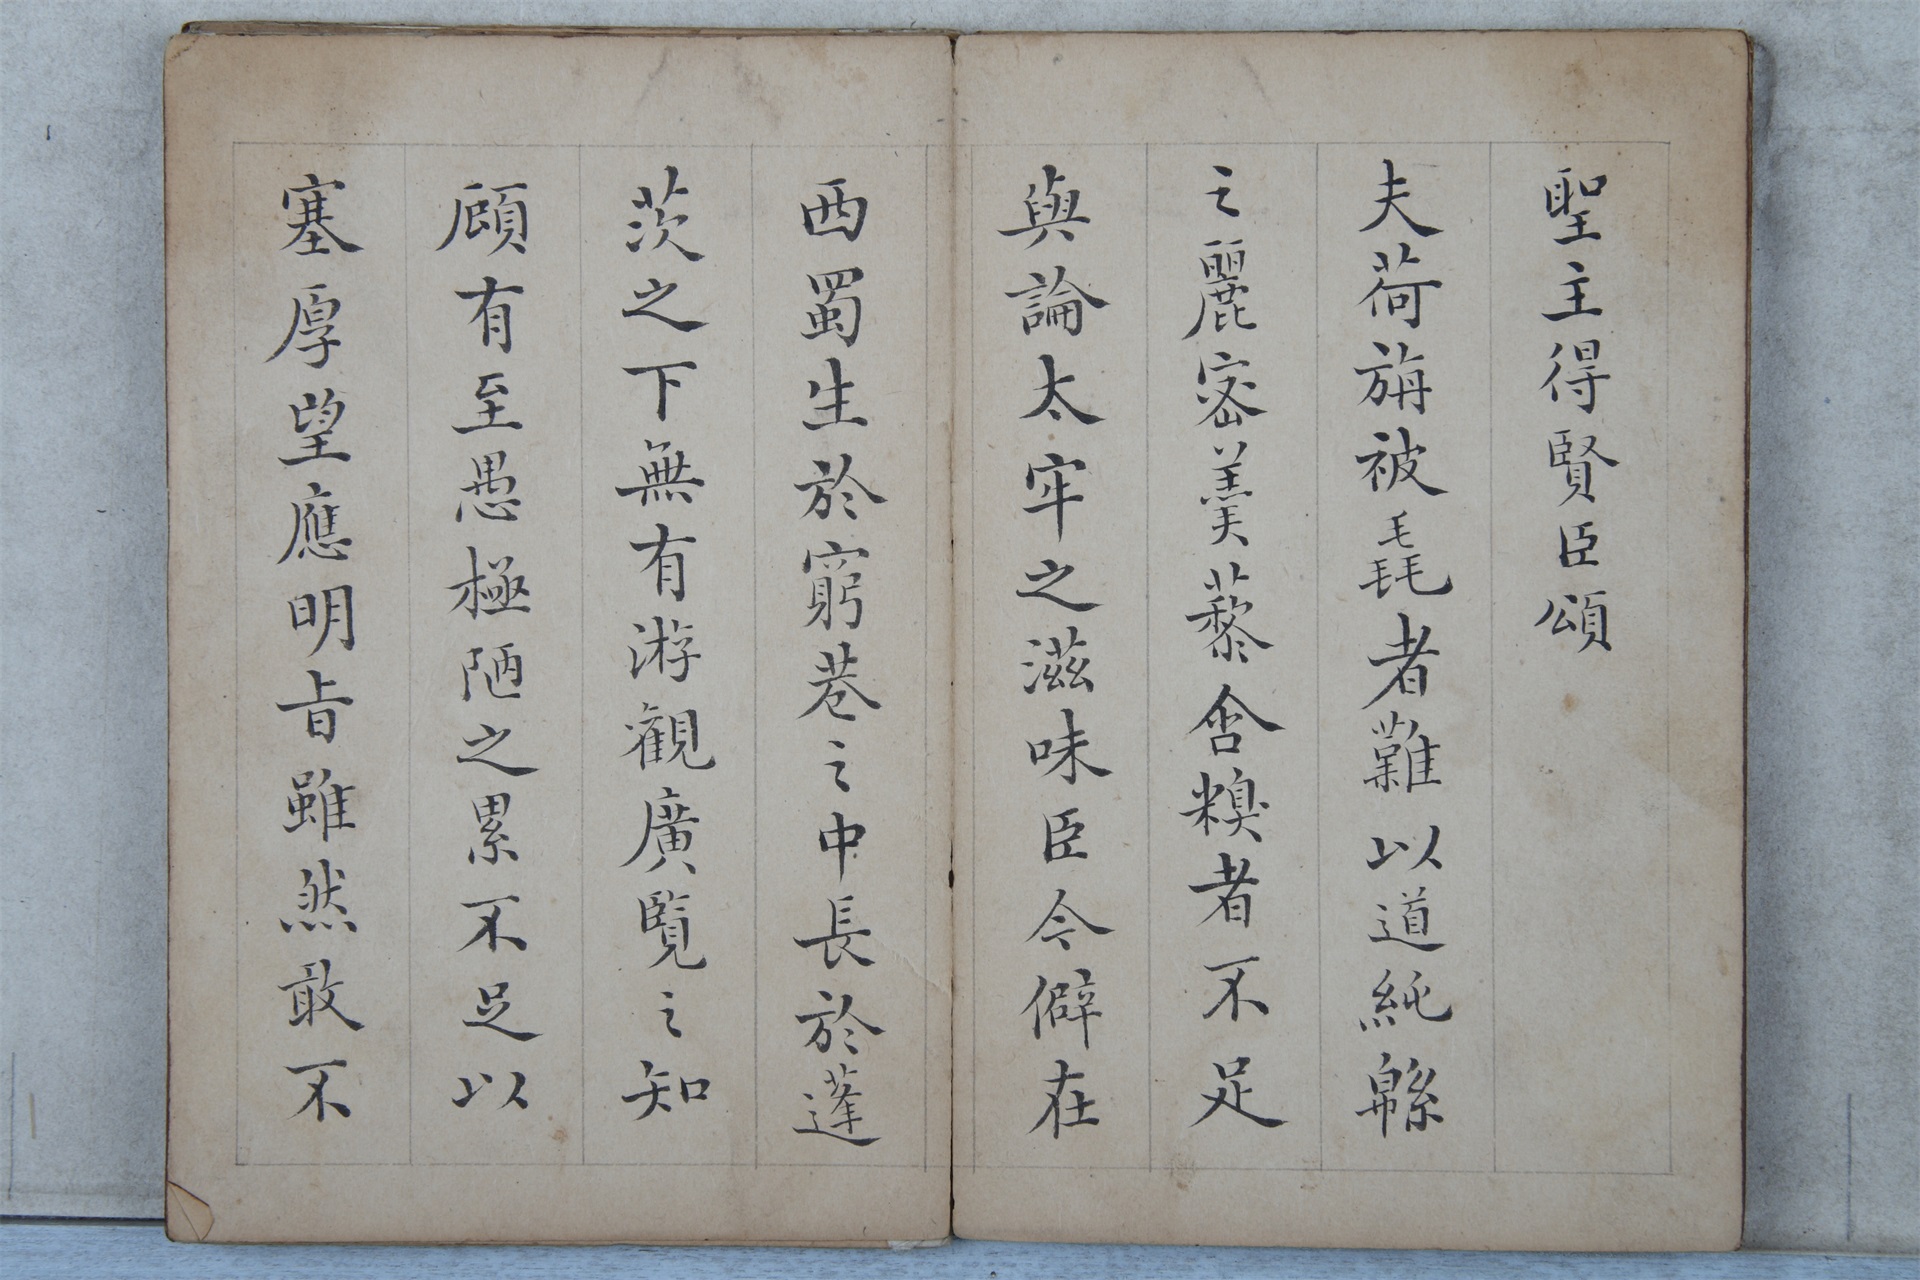 聖主得賢臣頌
夫荷旃被毳者難以道純緜
之麗密羹藜唅糗者不足
與論太牢之滋味臣今僻在
西蜀生於窮巷之中長於蓬
茨之下無有游觀廣覽之知
顧有至愚極陋之累不足以
塞厚望應明旨雖然敢不